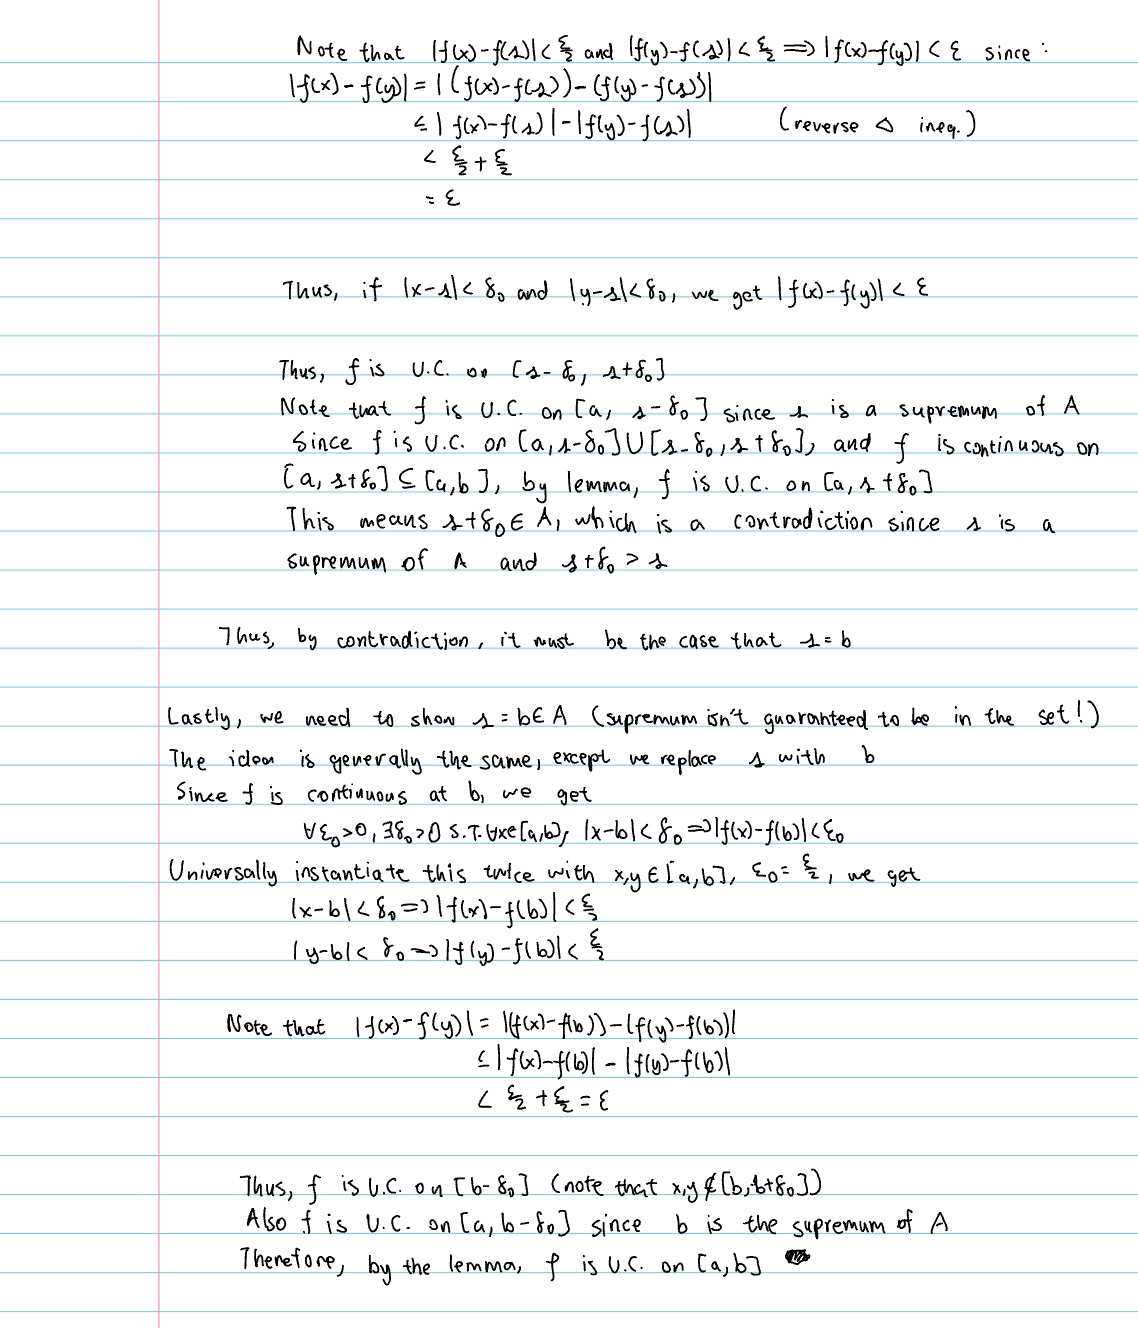 Note that |f(x)-f(s)|<ε/2 and |f(y)-f(s)|<ε/2 ⟹ |f(x)-f(y)| < ε since:
|f(x)-f(y)| = |(f(x)-f(s))-(f(y)-f(s))|
≤ |f(x)-f(s)|-|f(y)-f(s)| (reverse △ ineq.)
< ε/2 + ε/2
= ε
Thus, if |x-s|< δ₀ and |y-s|<δ₀, we get |f(x)-f(y)| < ε
Thus, f is U.C. on [s-δ₀, s+δ₀]
Note that f is U.C. on [a, s-δ₀] since s is a supremum of A
Since f is U.C. on [a,s-δ₀]∪[s-δ₀,s+δ₀], and f is continuous on
[a, s+δ₀] ⊆ [a,b], by lemma, f is U.C. on [a,s+δ₀]
This means s+δ₀ ∈ A, which is a contradiction since s is a
supremum of A and s+δ₀ > s
Thus, by contradiction, it must be the case that s=b
Lastly, we need to show s=b∈A (supremum isn't guaranteed to be in the set!)
The idea is generally the same, except we replace s with b
Since f is continuous at b, we get
∀ε₀>0, ∃δ₀>0 S.T. ∀x∈[a,b], |x-b|<δ₀ ⟹ |f(x)-f(b)|<ε₀
Universally instantiate this twice with x,y∈[a,b], ε₀=ε/2, we get
|x-b|<δ₀ ⟹ |f(x)-f(b)|<ε/2
|y-b|<δ₀ ⟹ |f(y)-f(b)|<ε/2
Note that |f(x)-f(y)| = |(f(x)-f(b))-(f(y)-f(b))|
≤ |f(x)-f(b)| - |f(y)-f(b)|
< ε/2 + ε/2 = ε
Thus, f is U.C. on [b-δ₀] (note that x,y∉[b,b+δ₀])
Also f is U.C. on [a,b-δ₀] since b is the supremum of A
Therefore, by the lemma, f is U.C. on [a,b]